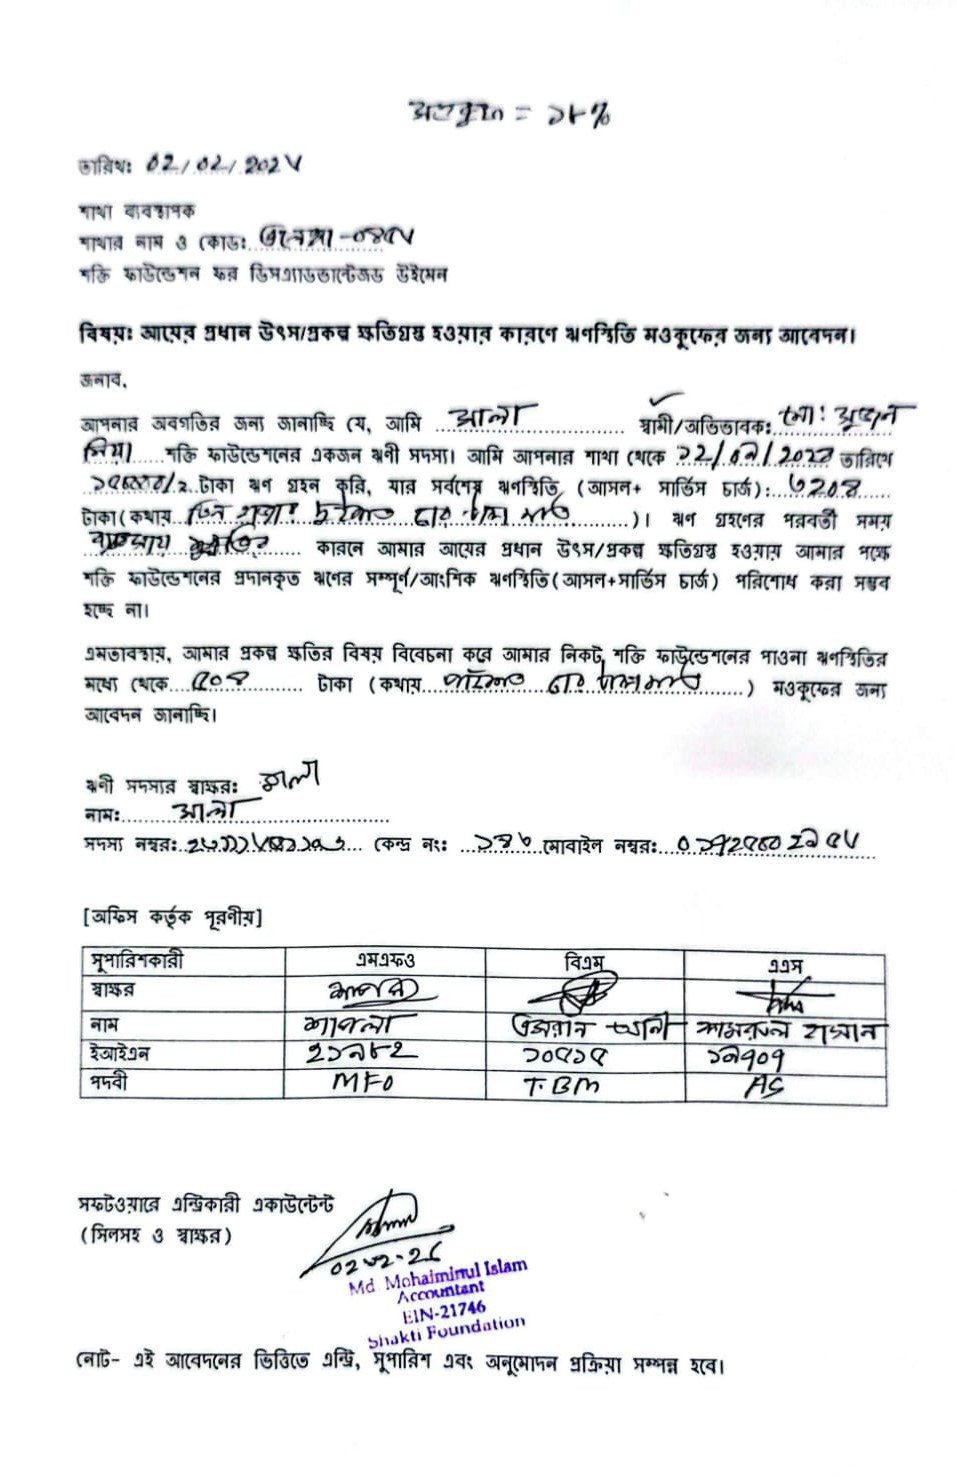 মওকুফ = ১৮%
তারিখঃ ০২/০২/২০২৬
শাখা ব্যবস্থাপক
শাখার নাম ও কোডঃ
শক্তি ফাউন্ডেশন ফর ডিসএ্যাডভান্টেজড উইমেন
বিষয়ঃ আয়ের প্রধান উৎস/প্রকল্প ক্ষতিগ্রস্ত হওয়ার কারণে ঋণস্থিতি মওকুফের জন্য আবেদন।
জনাব,
আপনার অবগতির জন্য জানাচ্ছি যে, আমি আলো স্বামী/অভিভাবকঃ মোঃ সুজন
মিয়া শক্তি ফাউন্ডেশনের একজন ঋণী সদস্য। আমি আপনার শাখা থেকে তারিখে
টাকা ঋণ গ্রহন করি, যার সর্বশেষ ঋণস্থিতি (আসল+ সার্ভিস চার্জ): ৩২০৪
টাকা(কথায় তিন হাজার দুইশত চার টাকা মাত্র)। ঋণ গ্রহণের পরবর্তী সময়
ব্যবসায় ক্ষতির কারনে আমার আয়ের প্রধান উৎস/প্রকল্প ক্ষতিগ্রস্ত হওয়ায় আমার পক্ষে
শক্তি ফাউন্ডেশনের প্রদানকৃত ঋণের সম্পূর্ণ/আংশিক ঋণস্থিতি(আসল+সার্ভিস চার্জ) পরিশোধ করা সম্ভব
হচ্ছে না।
এমতাবস্থায়, আমার প্রকল্প ক্ষতির বিষয় বিবেচনা করে আমার নিকট শক্তি ফাউন্ডেশনের পাওনা ঋণস্থিতির
মধ্যে থেকে ৫০৪ টাকা (কথায় পাঁচশত চার টাকা মাত্র) মওকুফের জন্য
আবেদন জানাচ্ছি।
ঋণী সদস্যর স্বাক্ষরঃ আলো
নামঃ আলো
সদস্য নম্বরঃ কেন্দ্র নং: মোবাইল নম্বরঃ
[অফিস কর্তৃক পূরণীয়]
সুপারিশকারী এমএফও বিএম এএস
স্বাক্ষর
নাম শাপলা এমরান আলী কামরুল হাসান
ইআইএন ২১৯৮২ ১০৫১৫ ১৯৭০৭
পদবী MFO T.BM AS
সফটওয়ারে এন্ট্রিকারী একাউন্টেন্ট
(সিলসহ ও স্বাক্ষর)
Md. Mohaiminul Islam
Accountant
EIN-21746
Shakti Foundation
নোট- এই আবেদনের ভিত্তিতে এন্ট্রি, সুপারিশ এবং অনুমোদন প্রক্রিয়া সম্পন্ন হবে।